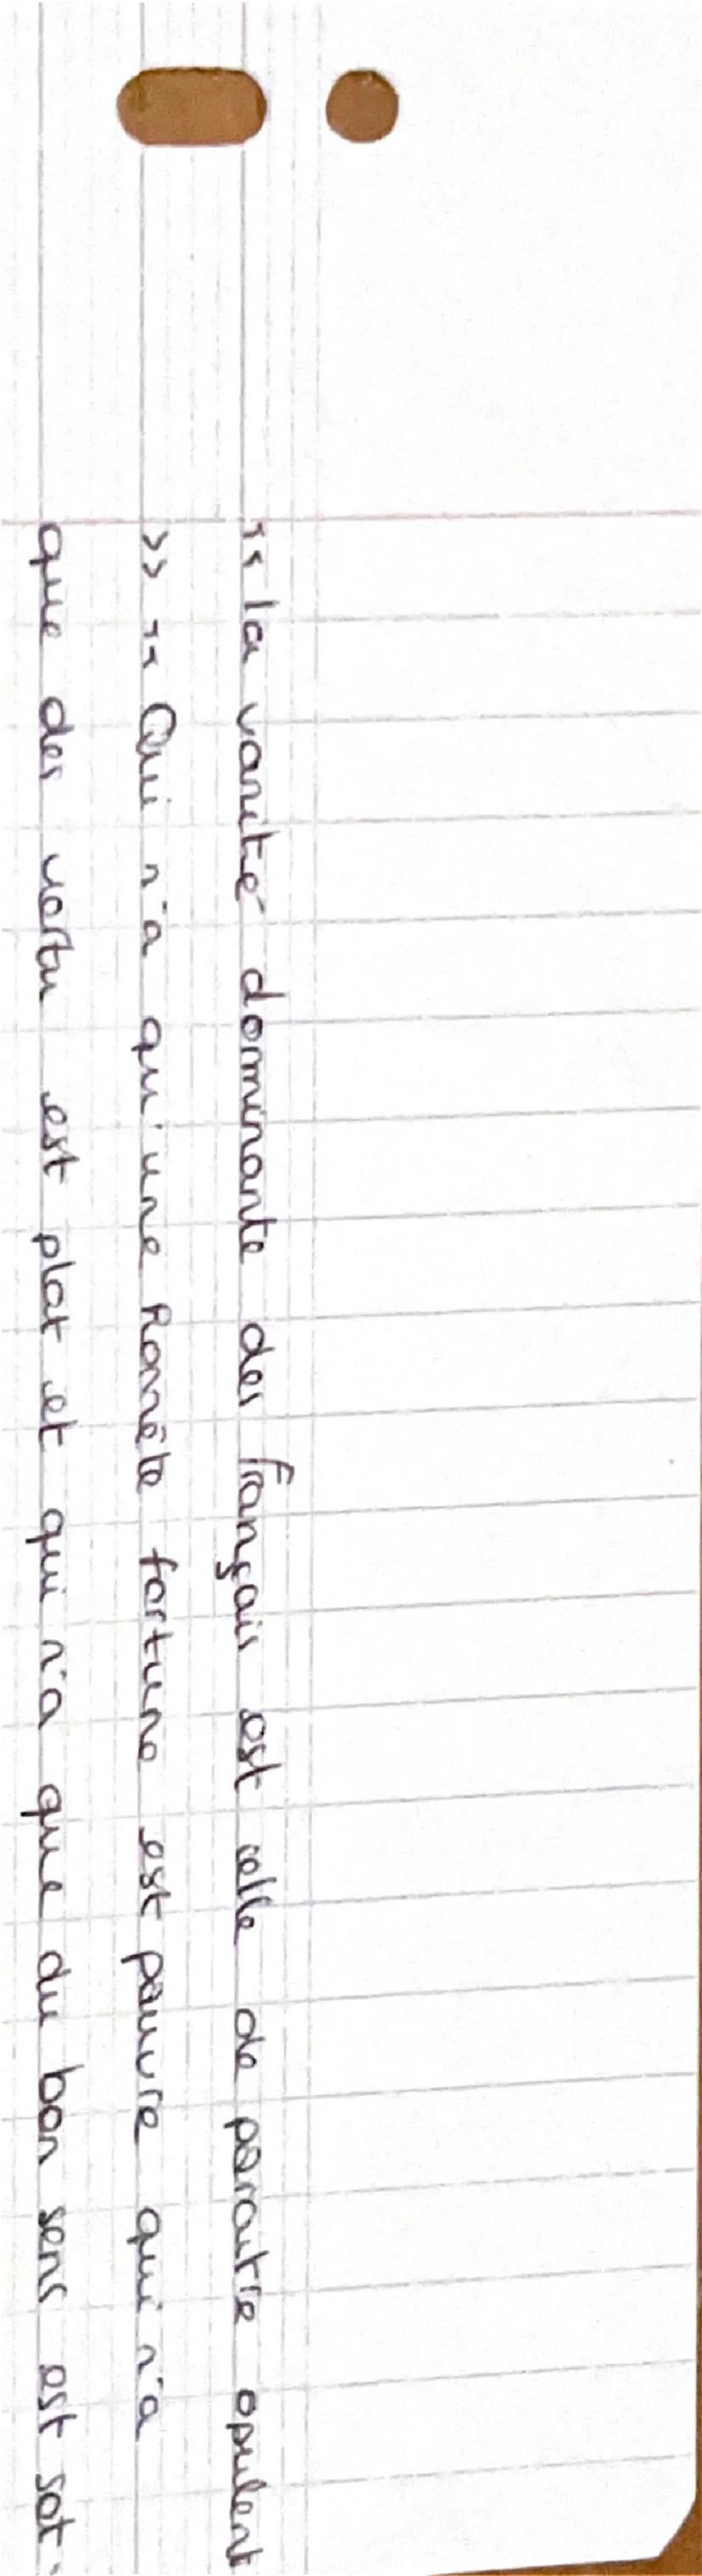 << la vanité dominante des français est celle de paraitre opulent
>> << Qui n'a qu'une honnête fortune est pauvre qui n'a
que des vertu est plat et qui n'a que du bon sens est sot.